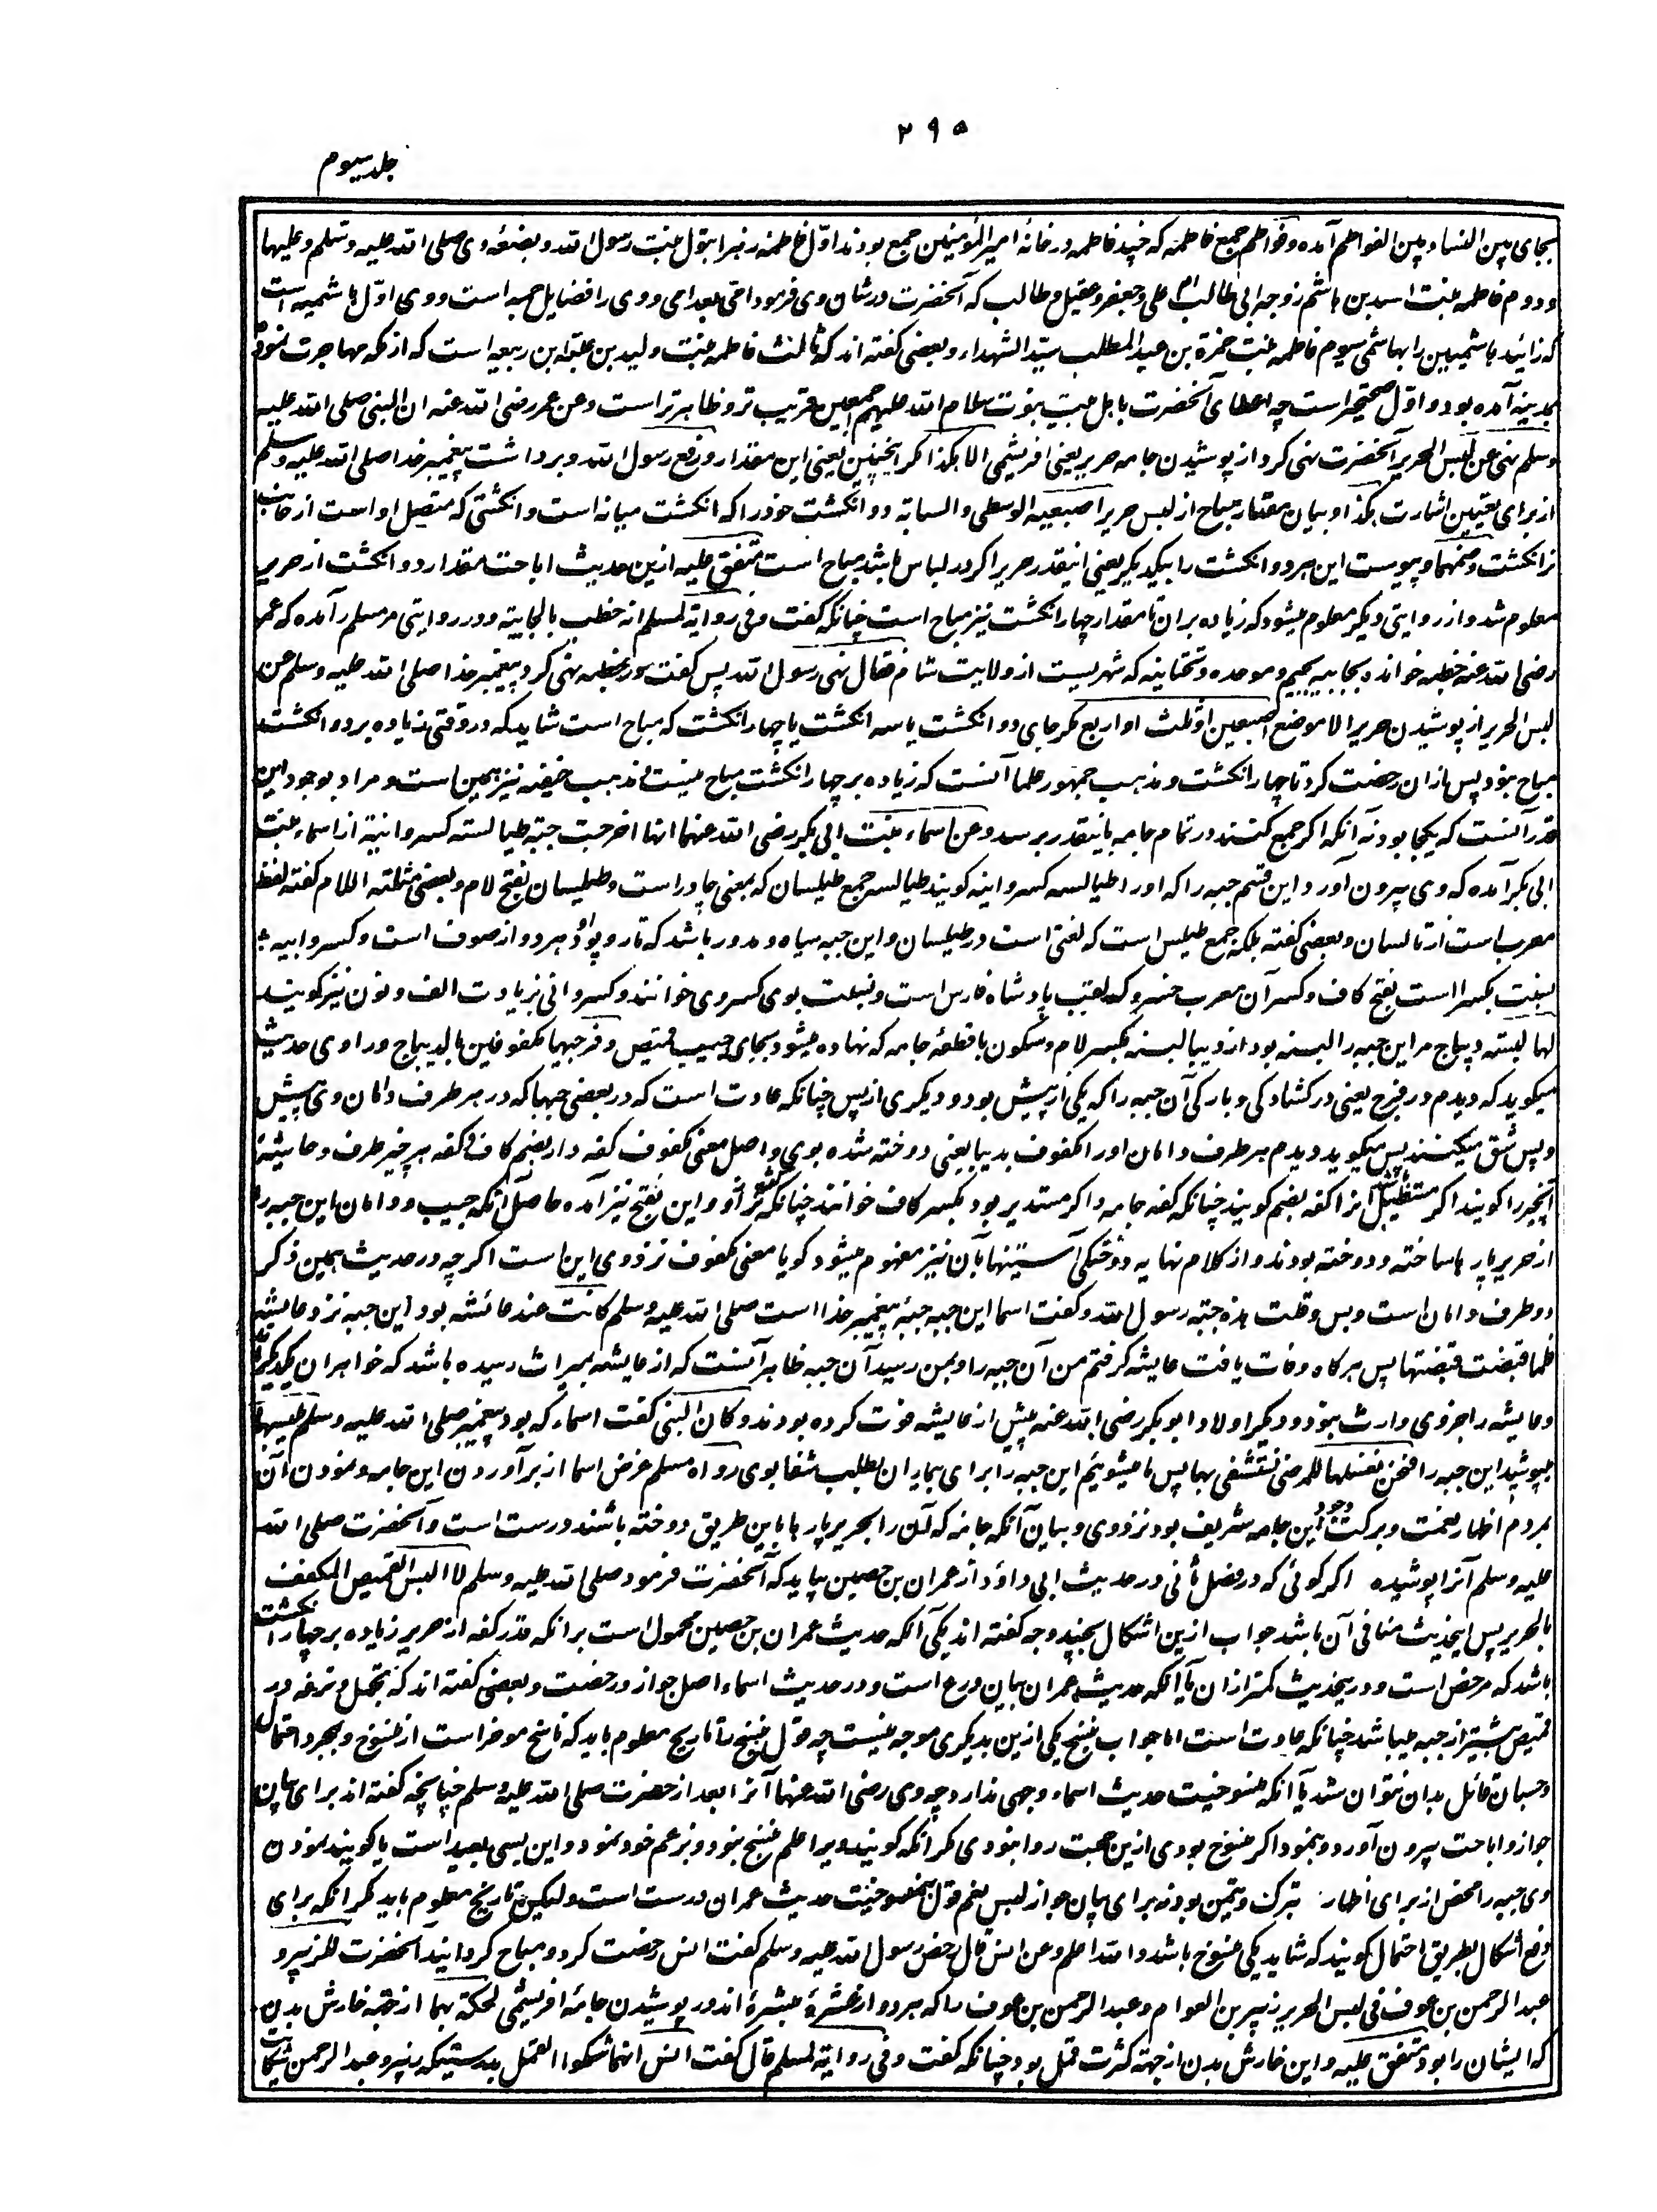 ۲۹۵
جلد سیوم
بجای بین النسا و بین الفواطم آمده و فواطم جمع فاطمه که چند فاطمه در خانهٔ امیرالمؤمنین جمع بودند اوّل فاطمه زهرا بتول بنت رسول الله و بضعهٔ وی صلی الله علیه وسلم وعلیها
و دوم فاطمه بنت اسد بن هاشم زوجه ابی طالب ام علی و جعفر و عقیل و طالب که آنحضرت در شان وی فرمود امی بعد امی و وی را فضایل جمه است و وی اوّل هاشمیه است
که زائید هاشمیین را بهاشمی سیوم فاطمه بنت حمزة بن عبد المطلب سیّد الشهداء و بعضی گفته اند که ثالث فاطمه بنت ولید بن عتبه بن ربیعه است که از مکه مهاجرت نموده
بمدینه آمده بود و اوّل صحیحتر است چه اعطای آنحضرت باهل بیت نبوت سلام الله علیهم اجمعین قریب تر و ظاهر تر است وعن عمر رضی الله عنه ان النبی صلی الله علیه
وسلم نهی عن لبس الحریر آنحضرت نهی کرد از پوشیدن جامه حریر یعنی افریشمی الا هکذا مگر اینچنین یعنی این مقدار و رفع رسول الله و برداشت پیغمبر خدا صلی الله علیه وسلم
از برای تعیین اشارت بکذا و بیان مقدار مباح از لبس حریر اصبعیه الوسطی والسبابة دو انگشت خود را که انگشت میانه است و انگشتی که متصل او است از جانب
نر انگشت وضمهما و پیوست این هر دو انگشت را بیکدیگر یعنی اینقدر حریر اگر در لباس باشد مباح است متفق علیه ازین حدیث اباحت مقدار دو انگشت از حریر
معلوم شد و از روایتی دیگر معلوم میشود که زیاده بران تا مقدار چهار انگشت نیز مباح است چنانکه گفت وفی روایة لمسلم انه خطب بالجابیة و در روایتی مر مسلم را آمده که عمر
رضی الله عنه خطبه خوانده بجابیه بجیم و موحده و تحتانیه که شهریست از ولایت شام فقال نهی رسول الله پس گفت در خطبه نهی کرد پیغمبر خدا صلی الله علیه وسلم عن
لبس الحریر از پوشیدن حریر الا موضع اصبعین او ثلث او اربع مگر جای دو انگشت یا سه انگشت یا چهار انگشت که مباح است شاید که در وقتی زیاده بر دو انگشت
مباح نبود پس ازان رخصت کرد تا چهار انگشت و مذهب جمهور علما آنست که زیاده بر چهار انگشت مباح نیست و مذهب حنیفه نیز همین است و مراد بوجود این
قدر آنست که یکجا بود نه آنکه اگر جمع کنند در تمام جامه باینقدر برسد وعن اسماء بنت ابی بکر رضی الله عنهما انها اخرجت جبة طیالسة کسروانیة از اسماء بنت
ابی بکر آمده که وی بیرون آورد این قسم جبه را که او را طیالسه کسروانیه گویند طیالسه جمع طیلسان که بمعنی چادر است و طیلسان بفتح لام و بعضی مثلثه اللام گفته لفظ
معرب است از تالسان و بعضی گفته بلکه جمع طیلس است که لغتی است در طیلسان و این جبه سیاه و مدور باشد که تار و پود او هر دو از صوف است و کسروانیه
نسبت بکسرا است بفتح کاف و کسر آن معرب خسرو که لقب پادشاه فارس است و نسبت بوی کسروی خوانند و کسروانی بزیادت الف و نون نیز گویند
لها لبنة دیباج مر این جبه را لبنه بود از دیبا لبنه بکسر لام و سکون با قطعهٔ جامه که نهاده میشود بجای جیب قمیص وفرجیها مکفوفین بالدیباج و راوی حدیث
میگوید که دیدم دو فرج یعنی دو کشادگی و بارکی آن جبه را که یکی از پیش بود و دیگری از پس چنانکه عادت است که در بعضی جبها که در هر طرف دامان وی پیش
و پس شق میکنند پس میگوید دیدم هر طرف دامان او را مکفوف بدیبا یعنی دوخته شده بوی و اصل معنی مکفوف کفه دار بضم کاف و کفه هر چیز طرف و حاشیهٔ
آنچیز را گویند اگر مستطیل باشد آنرا کفه بضم گویند چنانکه کفه جامه و اگر مستدیر بود بکسر کاف خوانند چنانکه کفهٔ ترازو و این بفتح نیز آمده حاصل آنکه جیب و دامان این جبه را
از حریر پاره ها ساخته و دوخته بودند و از کلام نهایه دوختگی آستینها بآن نیز مفهوم میشود گویا معنی مکفوف نزد وی این است اگرچه در حدیث همین ذکر
دو طرف دامان است و بس وقلت هذه جبة رسول الله و گفت اسما این جبه جبهٔ پیغمبر خدا است صلی الله علیه وسلم کانت عند عائشه بود این جبه نزد عایشه
فلما قبضت قبضتها پس هر گاه وفات یافت عایشه گرفتم من آن جبه را و بمن رسید آن جبه ظاهر آنست که از عایشه بمیراث رسیده باشد که خواهران یکدیگر
و عایشه را جز وی وارث نبود و دیگر اولاد ابوبکر رضی الله عنه پیش از عایشه فوت کرده بودند وکان النبی گفت اسماء که بود پیغمبر صلی الله علیه وسلم یلبسها
میپوشید این جبه را فنحن نغسلها للمرضی نستشفی بها پس ما میشوئیم این جبه را برای بیماران بطلب شفا بوی رواه مسلم غرض اسما از برآوردن این جامه و نمودن آن
بمردم اظهار نعمت و برکت وجود این جامه شریف بود نزد وی و بیان آنکه جامه که آن را بحریر پاره ها باین طریق دوخته باشند درست است و آنحضرت صلی الله
علیه وسلم آنرا پوشیده اگر گوئی که در فصل ثانی در حدیث ابی داؤد از عمران بن حصین بیاید که آنحضرت فرمود صلی الله علیه وسلم لا البس القمیص المکفف
بالحریر پس اینحدیث منافی آن باشد جواب ازین اشکال بچند وجه گفته اند یکی آنکه حدیث عمران بن حصین محمول است برانکه قدر کفه از حریر زیاده بر چهار انگشت
باشد که مرخص است و درینحدیث کمتر ازان یا آنکه حدیث عمران بیان ورع است و در حدیث اسماء اصل جواز و رخصت و بعضی گفته اند که تجمل و ترفه در
قمیص بیشتر از جبه میباشد چنانکه عادت است اما جواب بنسخ یکی ازین بدیگری موجه نیست چه قول بنسخ را تاریخ معلوم باید که ناسخ موخر است از منسوخ و بمجرد احتمال
و حسبان قائل بدان نتوان شد یا آنکه منسوخیت حدیث اسماء وجهی ندارد چه وی رضی الله عنها آنرا بعد از حضرت صلی الله علیه وسلم چنانچه گفته اند برای بیان
جواز و اباحت بیرون آورد و بنمود اگر منسوخ بودی ازین صحبت روا نبودی مگر آنکه گویند ویرا علم بنسخ نبود و بزعم خود نمود و این بسی بعید است یا گویند نمودن
وی جبه را محض از برای اظهار تبرک و تیمن بود نه برای بیان جواز لبس نعم قول بمنسوخیت حدیث عمران درست است ولیکن تاریخ معلوم باید مگر آنکه برای
دفع اشکال بطریق احتمال گویند که شاید یکی منسوخ باشد والله اعلم وعن انس قال رخص رسول الله علیه وسلم گفت انس رخصت کرد و مباح گردانید آنحضرت للزبیر و
عبد الرحمن بن عوف فی لبس الحریر زبیر بن العوام و عبد الرحمن بن عوف را که هر دو از عشرهٔ مبشرهٔ اند در پوشیدن جامهٔ افریشمی لحکة بهما از جهة خارش بدن
که ایشان را بود متفق علیه و این خارش بدن از جهة کثرت قمل بود چنانکه گفت وفی روایة لمسلم قال گفت انس انهما شکوا القمل بدرستیکه زبیر و عبد الرحمن شکایت